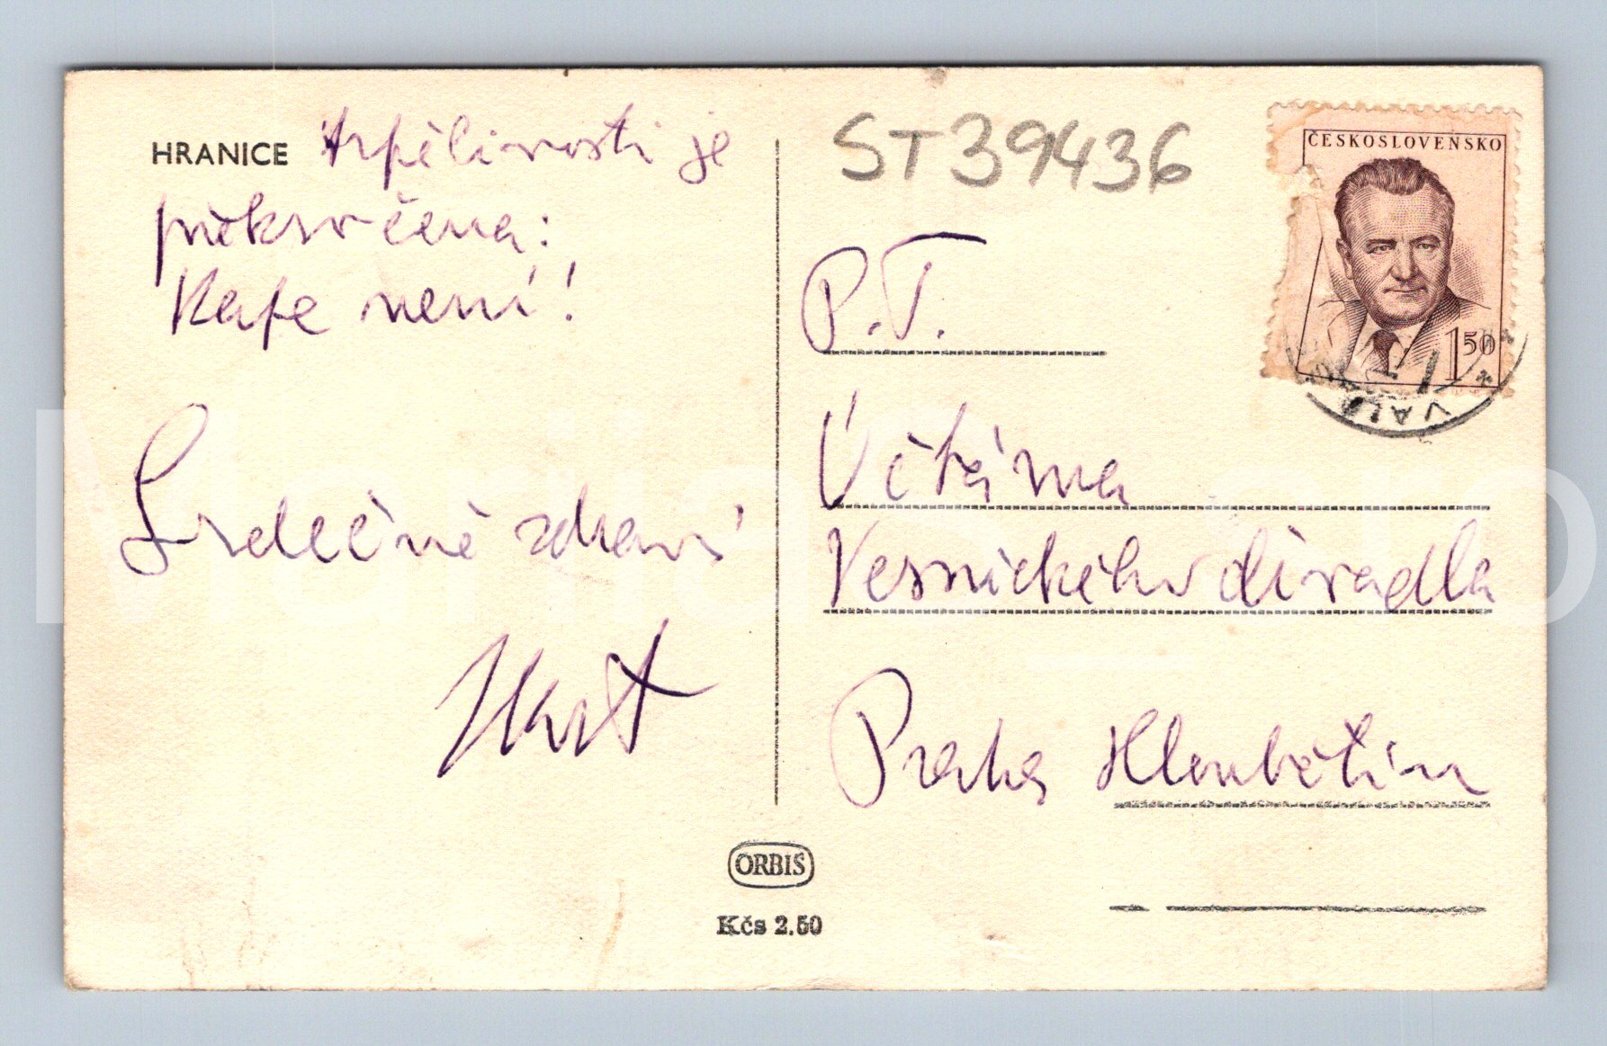 HRANICE trpělivosti je
překročena:
Kafe není!
Srdečně zdraví
ST39436
ČESKOSLOVENSKO
1 50
P.T.
Účtárna
Vesnického divadla
Praha Hloubětín
ORBIS
Kčs 2.50